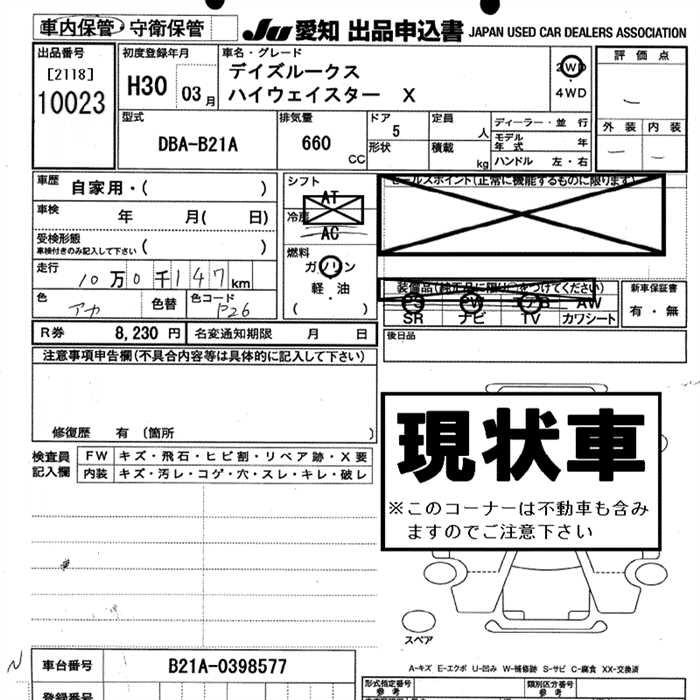 車内保管・守衛保管
JU 愛知 出品申込書 JAPAN USED CAR DEALERS ASSOCIATION
出品番号
[2118]
10023
初度登録年月
H30 03月
車名・グレード
デイズルークス
ハイウェイスター X
2WD
・
4WD
評価点
外装 内装
型式
DBA-B21A
排気量
660
CC
ドア
5
形状
定員
人
積載
kg
ディーラー・並行
モデル年式 年
ハンドル 左・右
車歴
自家用・( )
車検
年 月( 日)
受検形態
車検付きのみ記入して下さい ( )
走行
10万0千147km
色
アカ
色替
色コード
P26
シフト
AT
AC
燃料
ガソリン
軽・油
( )
セールスポイント(正常に機能するものに限ります)
新車保証書
有・無
AW
SR ナビ TV カワシート
後日品
R券 8,230円 名変通知期限 月 日
注意事項申告欄(不具合内容等は具体的に記入して下さい)
修復歴 有 (箇所 )
検査員
記入欄
FW キズ・飛石・ヒビ割・リペア跡・X要
内装 キズ・汚レ・コゲ・穴・スレ・キレ・破レ
現状車
※このコーナーは不動車も含み
ますのでご注意下さい
スペア
A-キズ E-エクボ U-凹み W-補修跡 S-サビ C-腐食 XX-交換済
車台番号 B21A-0398577
型式指定番号
参考
類別区分番号
参考
登録番号